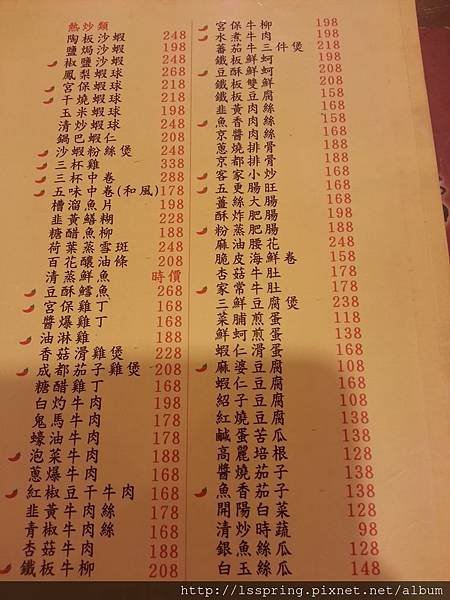 熱炒類
陶板沙蝦 248
鹽焗沙蝦 198
椒鹽沙蝦 248
鳳梨蝦球 268
宮保蝦球 218
干燒蝦球 218
玉米蝦球 198
清炒蝦球 248
鍋巴蝦仁 208
沙蝦粉絲煲 248
三杯雞 338
三杯中卷 288
五味中卷(和風) 178
糟溜魚片 198
韭黃鱔糊 228
糖醋魚柳 188
荷葉蒸雪斑 248
百花釀油條 208
清蒸鮮魚 時價
豆酥鱈魚 268
宮保雞丁 168
醬爆雞丁 168
油淋雞 188
香菇滑雞煲 228
成都茄子雞煲 208
糖醋雞丁 168
白灼牛肉 198
鬼馬牛肉 178
蠔油牛肉 178
泡菜牛肉 188
蔥爆牛肉 168
紅椒豆干牛肉 168
韭黃牛肉絲 178
青椒牛肉絲 168
杏菇牛肉 188
鐵板牛柳 208
宮保牛柳 198
水煮牛肉 198
蕃茄牛三件煲 218
鐵板鮮蚵 198
豆酥鮮蚵 208
鐵板雙鮮 208
鐵板豆腐 158
韭黃肉絲 168
魚香肉絲 158
京醬肉絲 168
蔥燒排骨 188
京都排骨 188
客家小炒 168
五更腸旺 168
薑絲大腸 168
酥炸肥腸 198
粉蒸肥腸 188
麻油腰花 248
脆皮海鮮卷 158
杏菇牛肚 178
家常牛肚 178
三鮮豆腐煲 238
菜脯煎蛋 118
鮮蚵煎蛋 138
蝦仁滑蛋 168
麻婆豆腐 108
蝦仁豆腐 168
紹子豆腐 108
紅燒豆腐 138
鹹蛋苦瓜 138
高麗培根 128
醬燒茄子 138
魚香茄子 138
開陽白菜 128
清炒時蔬 98
銀魚絲瓜 128
白玉絲瓜 148
http://lsspring.pixnet.net/album